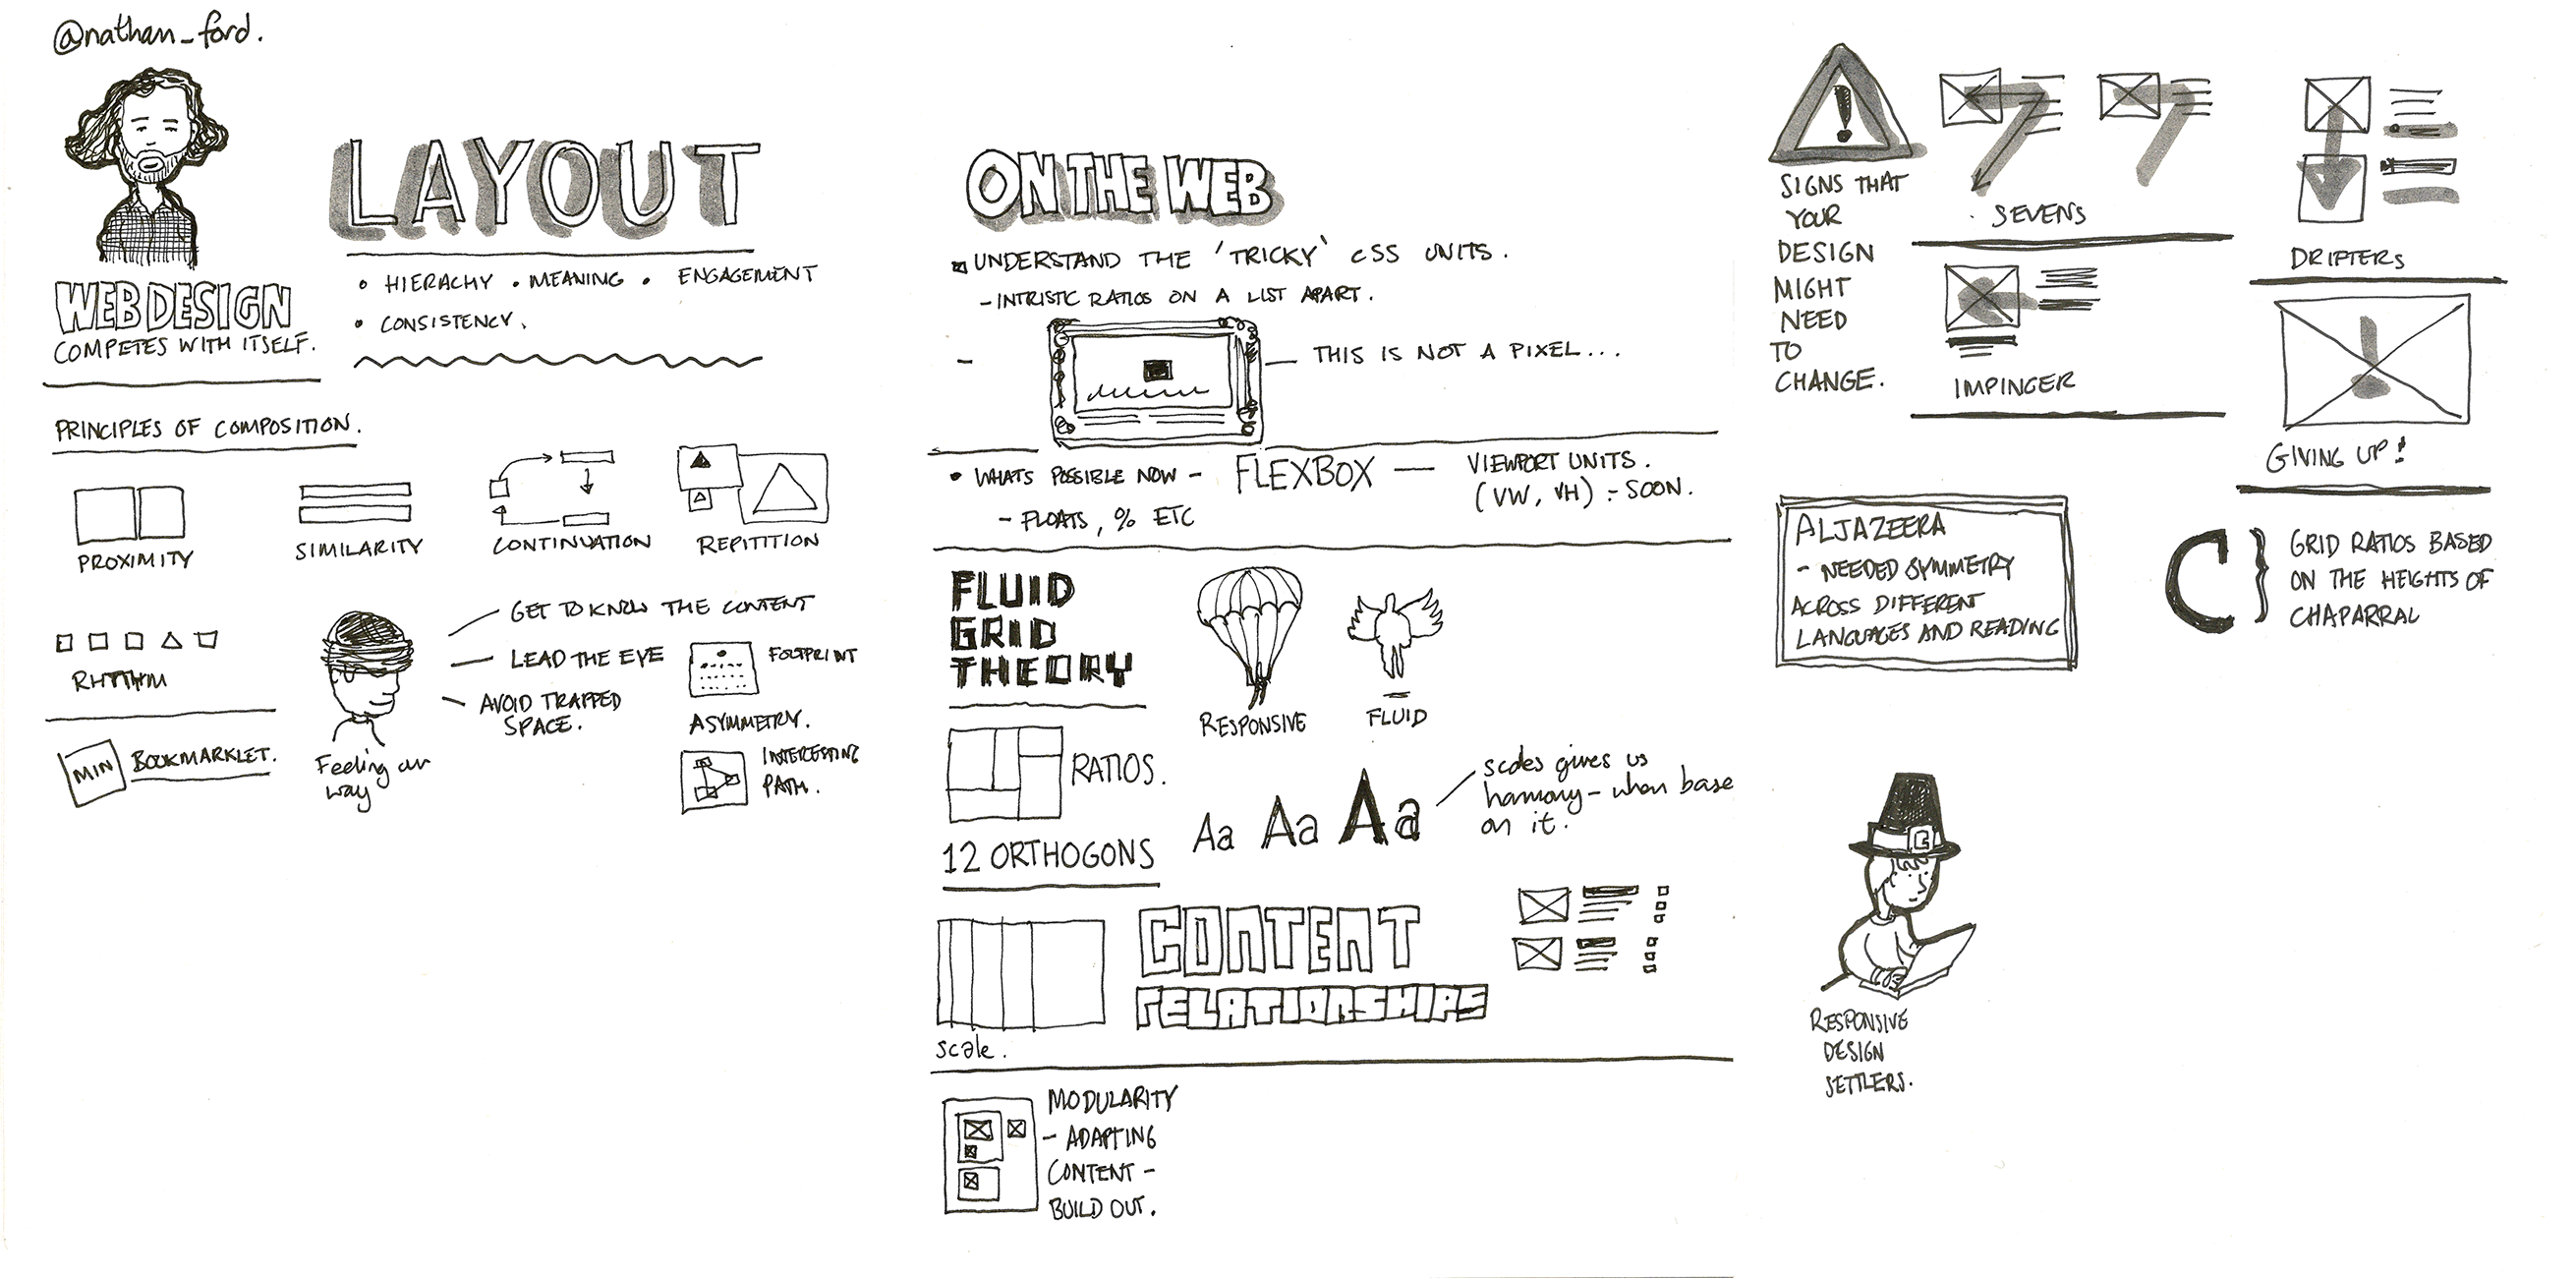 @nathan_ford.
LAYOUT
WEB DESIGN
COMPETES WITH ITSELF.
• HIERACHY • MEANING • ENGAGEMENT
• CONSISTENCY.
PRINCIPLES OF COMPOSITION.
PROXIMITY
SIMILARITY
CONTINUATION
REPITITION
RHYTHM
GET TO KNOW THE CONTENT
LEAD THE EYE
AVOID TRAPPED
SPACE.
FOOTPRINT
ASYMMETRY.
INTERESTING
PATH.
MIN
BOOKMARKLET.
Feeling our
way
ON THE WEB
UNDERSTAND THE 'TRICKY' CSS UNITS.
- INTRISTIC RATIOS ON A LIST APART.
- THIS IS NOT A PIXEL...
• WHATS POSSIBLE NOW - FLEXBOX — VIEWPORT UNITS.
(VW, VH) :- SOON.
- FLOATS, % ETC
FLUID
GRID
THEORY
RESPONSIVE
FLUID
RATIOS.
12 ORTHOGONS
Aa Aa Aa
scales gives us
harmony - when base
on it.
scale.
CONTENT
RELATIONSHIPS
MODULARITY
- ADAPTING
CONTENT -
BUILD OUT.
!
SIGNS THAT
YOUR
DESIGN
MIGHT
NEED
TO
CHANGE.
SEVENS
DRIFTERS
IMPINGER
!
GIVING UP!
ALJAZEERA
- NEEDED SYMMETRY
ACROSS DIFFERENT
LANGUAGES AND READING
C } GRID RATIOS BASED
ON THE HEIGHTS OF
CHAPARRAL
RESPONSIVE
DESIGN
SETTLERS.